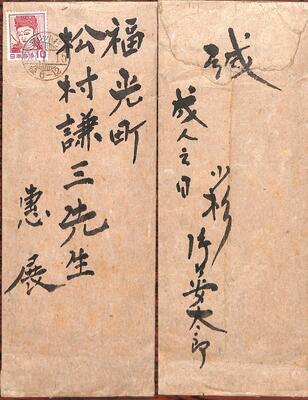 福光町
松村謙三先生
惠展
日本郵便
10
緘
成人之日
小杉
太郎